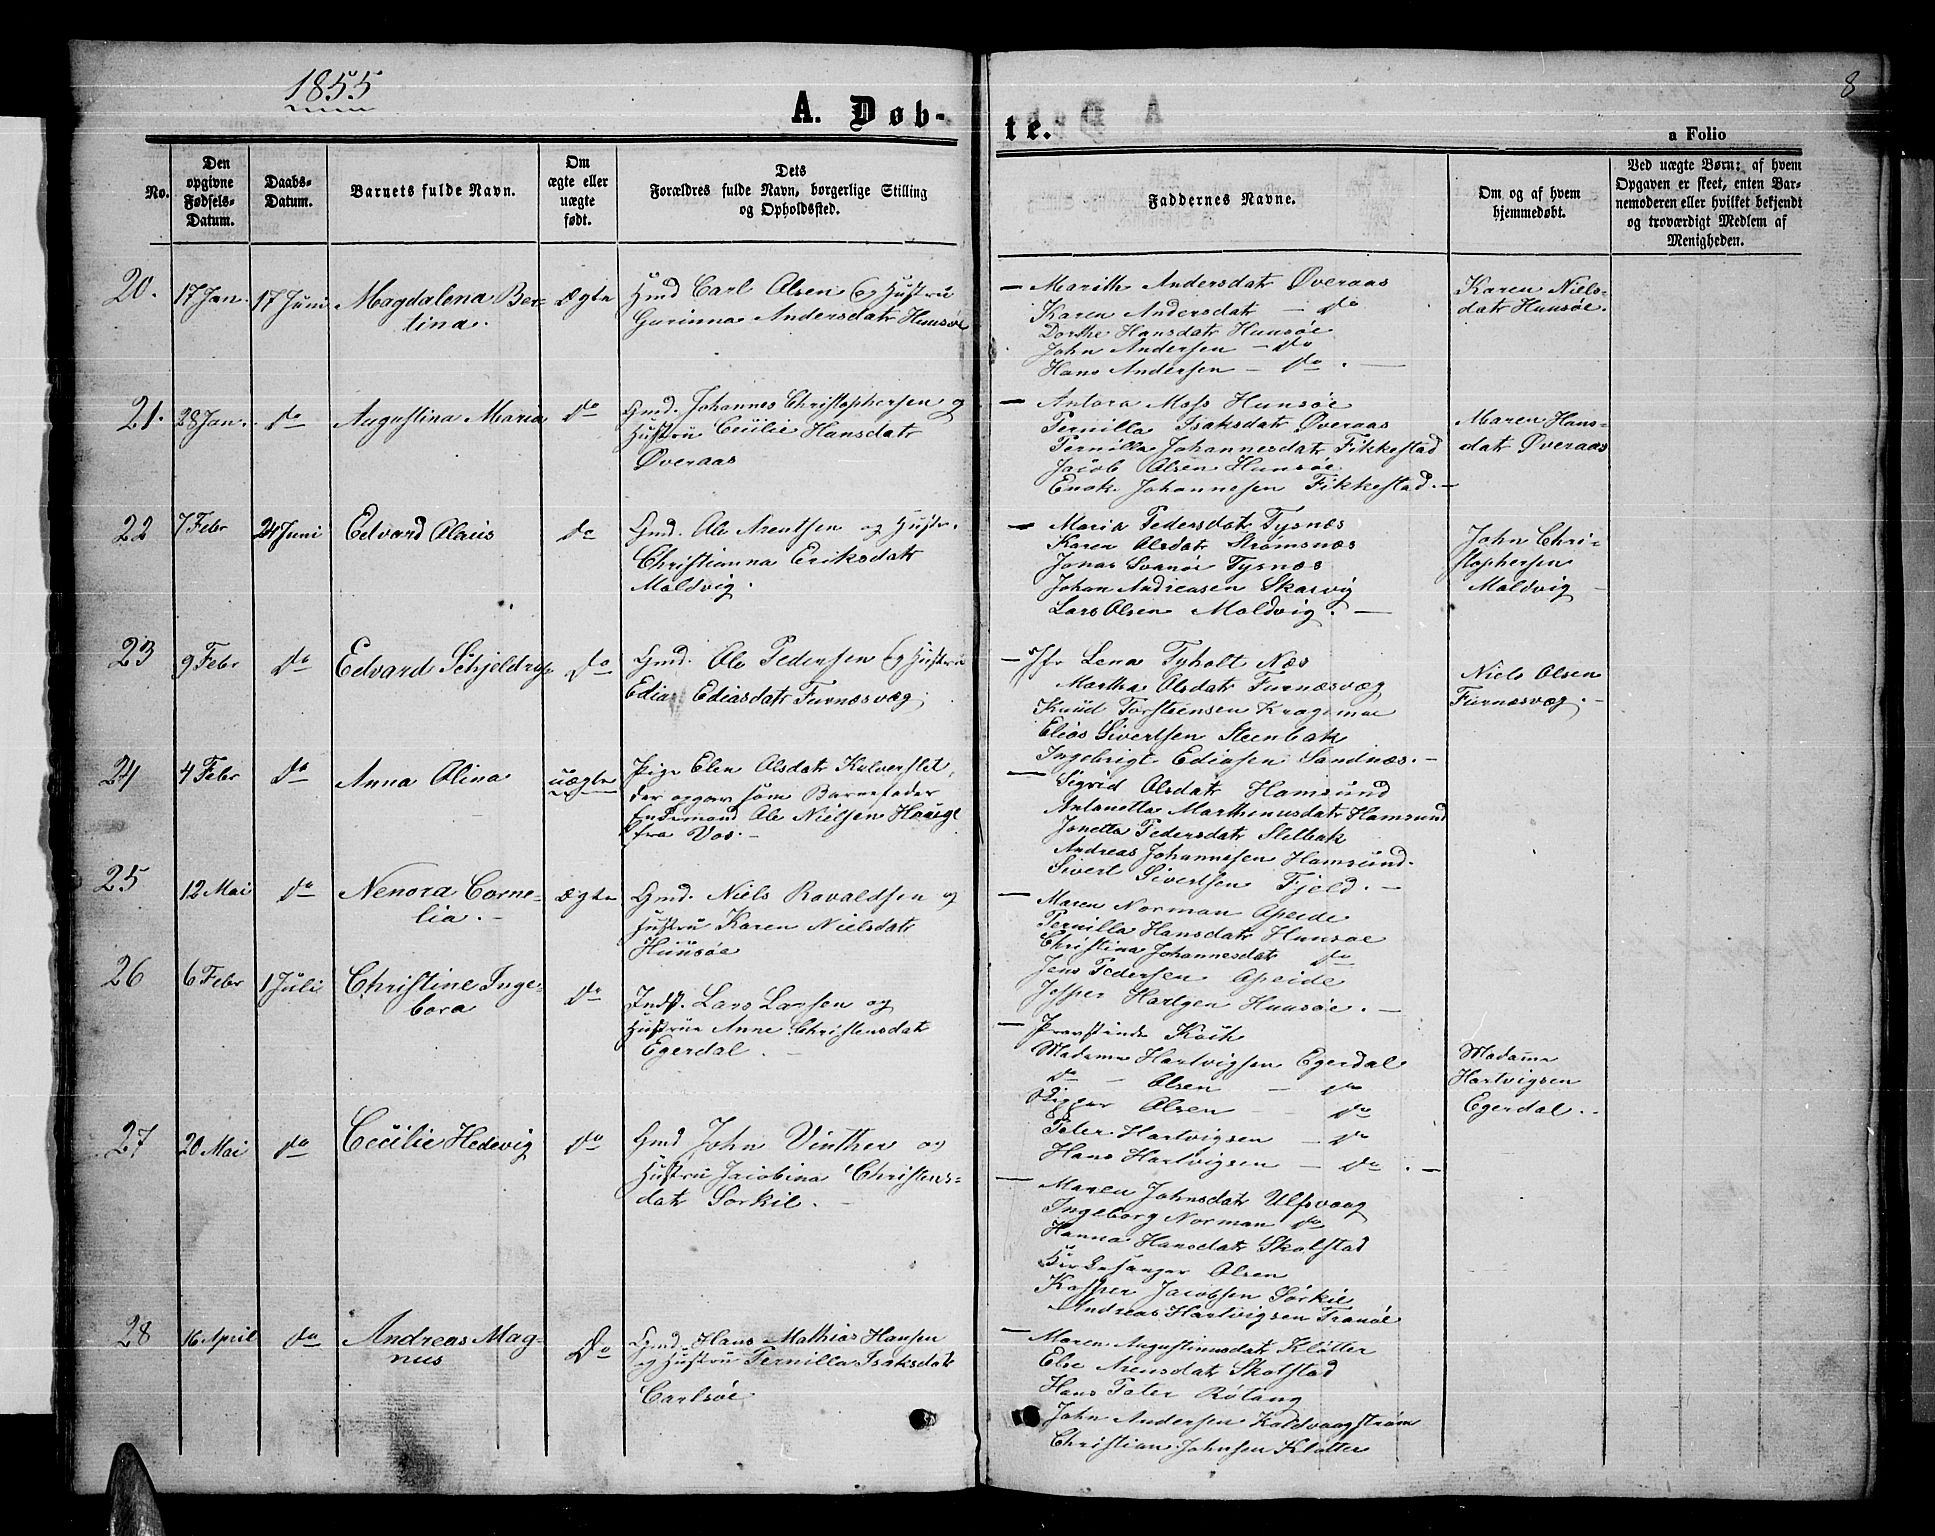 1855
8
A. Døb-
te.
a Folio
No.
Den
opgivne
Fødsels-
Datum.
Daabs-
Datum.
Barnets fulde Navn.
Om
ægte eller
uægte
født.
Dets
Forældres fulde Navn, borgerlige Stilling
og Opholdssted.
Faddernes Navne.
Om og af hvem
hjemmedøbt.
Ved uægte Børn; af hvem
Opgaven er skeet, enten Bar-
nemoderen eller hvilket bekjendt
og troværdigt Medlem af
Menigheden.
20. 17 Jan. 17 Juni Magdalena Ber-
tina. Ægte
Gmd Carl Olsen og Hustru
Gurinna Andersdatr Hunsøe
— Marith Andersdatr Øveraas
Karen Andersdatr — do
Dorthe Hansdatr Hunsøe
John Andersen — do
Hans Andersen — do. —
Karen Niels-
datr Hunsøe.
21. 28 Jan. do Augustina Maria do
Gmd. Johannes Christophersen og
Hustru Cecilie Hansdatr
Øveraas
— Antora Moss Hunsøe
Pernilla Isaksdatr Øveraas
Pernilla Johannesdatr Fikkestad
Jacob Olsen Hunsøe
Enok Johannesen Fikkestad. —
Maren Hans-
datr Øveraas
22 7 Febr 24 Juni Edvard Olaus do
Gmd. Ole Arentsen og Hustr.
Christianna Eriksdatr
Moldvig.
— Maria Pedersdatr Tysnæs
Karen Olsdatr Strømsnæs
Jonas Svanøe Tysnæs
Johan Andreasen Skarvig
Lars Olsen Moldvig. —
John Chri-
stophersen
Moldvig —
23 9 Febr do Edvard Schjeldrup do
Gmd. Ole Pedersen og Hustru
Edia Ediasdatr Furnæsvæg.
— Jfr Lena Tyholt Næs
Martha Olsdatr Furnæsvæg
Knud Torsteensen Kragmoe
Elias Sivertsen Steenbak
Ingebrigt Ediasen Sandnæs. —
Niels Olsen
Furnæsvæg. —
24 4 Febr do Anna Olina uægte
Pige Elen Olsdatr Kalverslet,
der opgav som Barnefader
Enkemand Ole Nielsen Hauge
fra Vos. —
— Sigrid Olsdatr Hamsund
Antonetta Marthinusdatr Hamsund
Jonetta Pedersdatr Stelbak
Andreas Johannesen Hamsund.
Sivert Sivertsen Fjeld. —
25 12 Mai do Nenora Corne-
lia. — Ægte
Gmd. Niels Ravaldsen og
Hustru Karen Nielsdatr
Hunsøe
— Maren Norman Apeide
Pernilla Hansdatr Hunsøe
Christina Johannesdatr do
Jens Pedersen Apeide
Jesper Hartgen Hunsøe. —
26 6 Febr 1 Juli Christine Inge-
bora do
Indst. Lars Larsen og
Hustrue Anne Christensdatr
Egerdal. —
— Provstinde Koch
Madame Hartvigsen Egerdal
do — Olsen — do
Olsen — do
Peter Hartvigsen — do
Hans Hartvigsen — do. —
Madame
Hartvigsen
Egerdal. —
27 20 Mai do Cecilie Hedevig do
Gmd John Vinther og
Hustru Jacobina Christens-
datr Sorkil. —
— Maren Johnsdatr Ulfsvaag
Ingeborg Norman do
Hanna Hansdatr Skolstad
Kirkesanger Olsen
Kasper Jacobsen Sørkil
Andreas Hartvigsen Tranøe
28 16 April do Andreas Mag-
nus Do
Gmd. Hans Mathias Hansen
og Hustru Pernilla Isaksdatr
Carlsøe
— Maren Augustinusdatr Kløtter
Else Arensdatr Skolstad
Hans Peter Røtang
John Andersen Kaldvaagstrøm
Christian Johnsen Kløtter